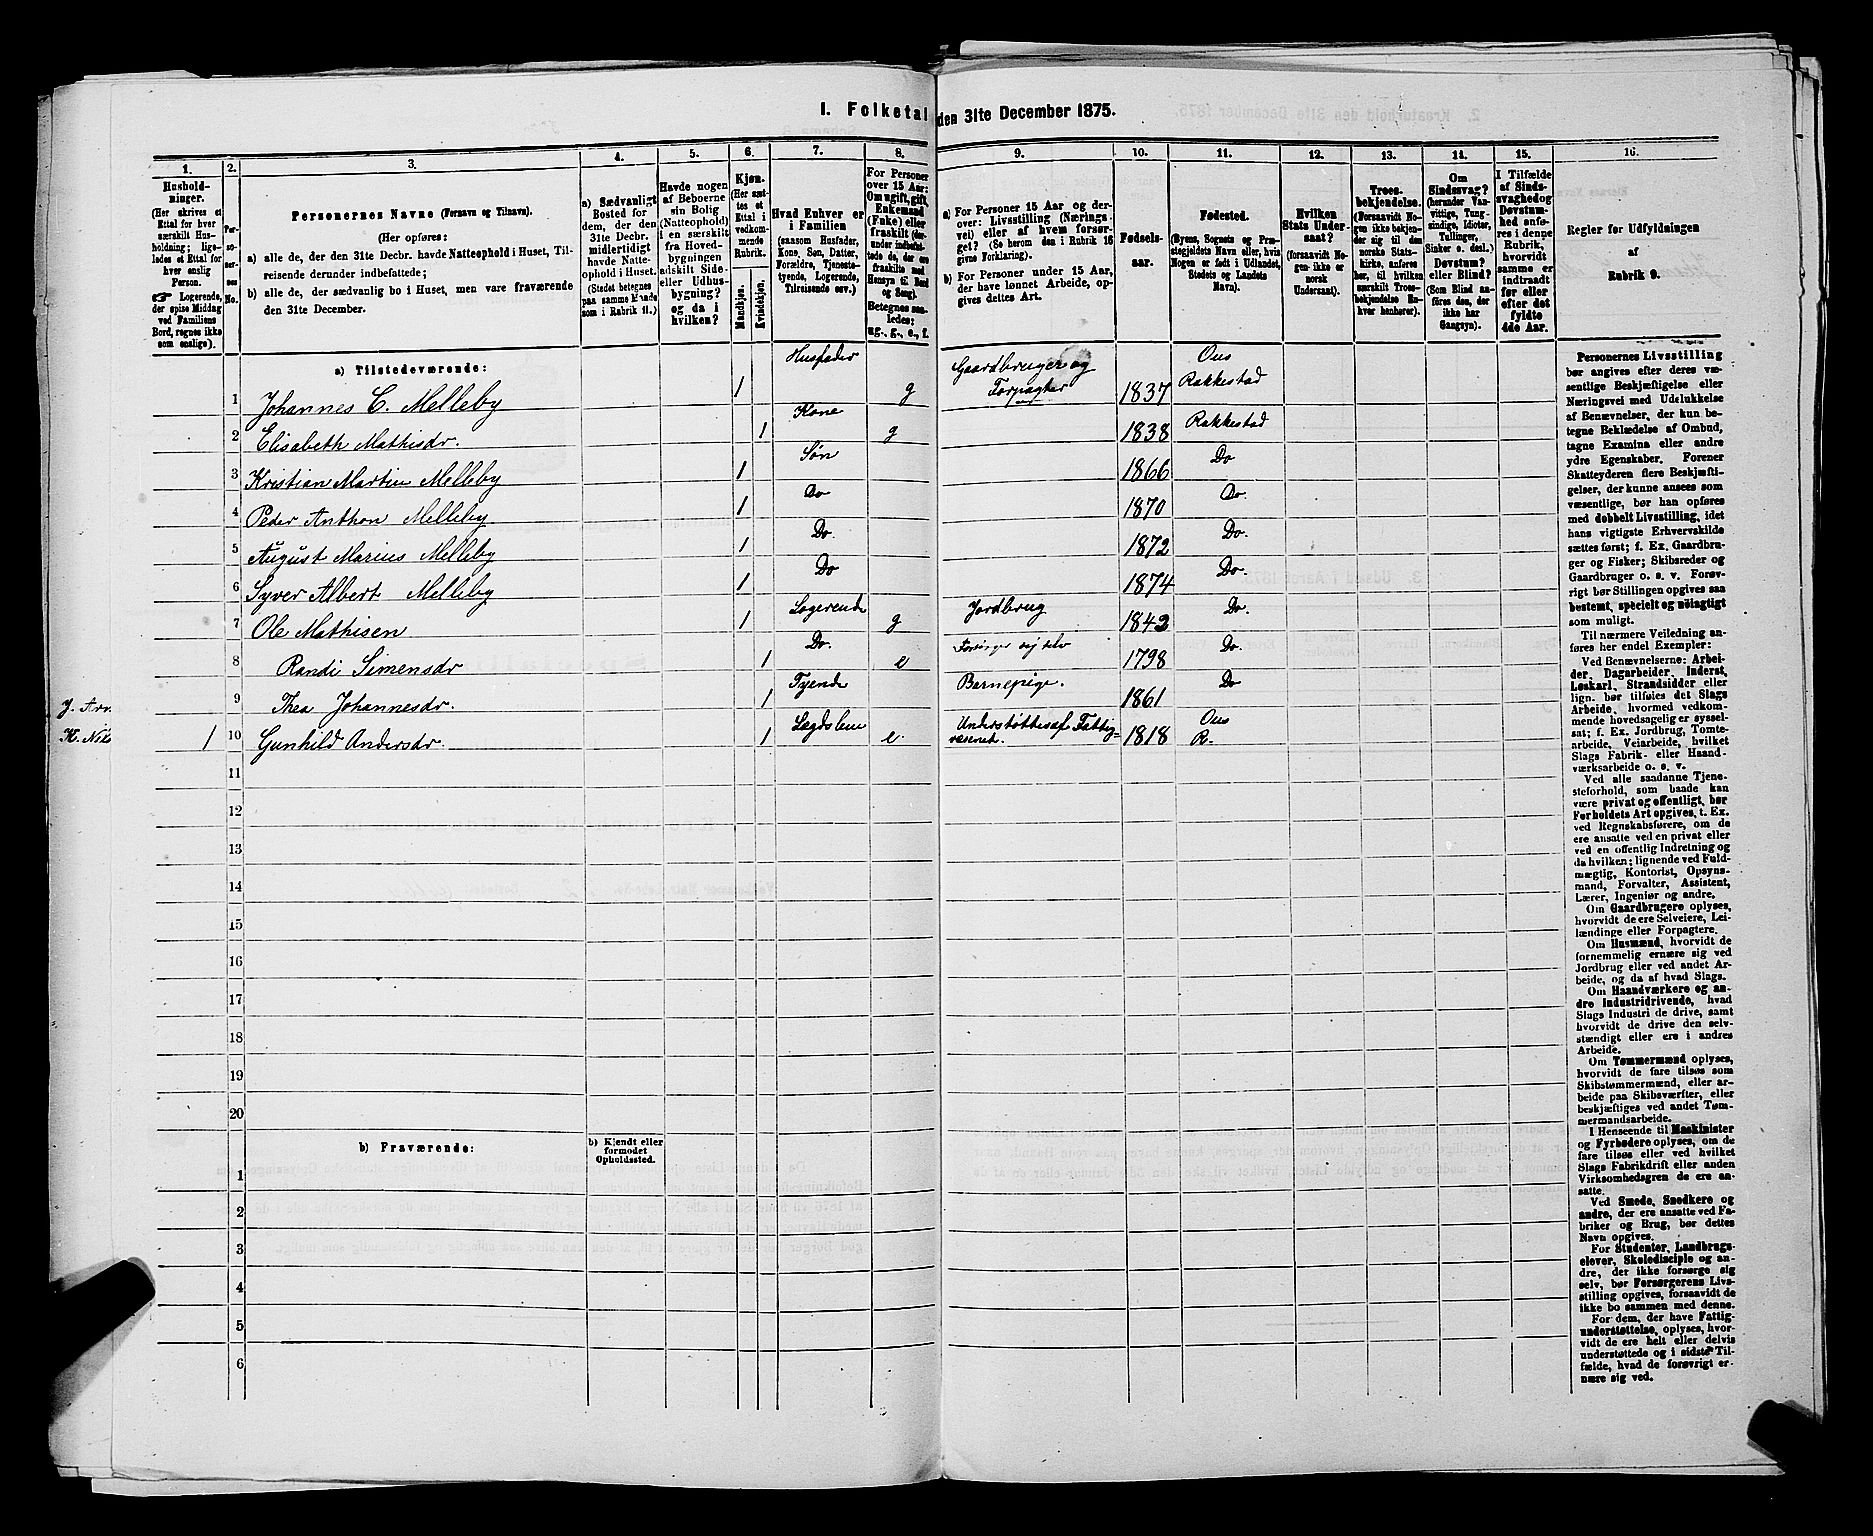 I. Folketal den 31te December 1875.
1. 2. 3. 4. 5. 6. 7. 8. 9. 10. 11. 12. 13. 14. 15. 16.
Hushold-
ninger.
(Her skrives et
Ettal for hver
særskilt Hus-
holdning; lige-
ledes et Ettal for
hver enslig
Person.
☞ Logerende,
der spise Middag
ved Familiens
Bord, regnes ikke
som enslige).
Per-
so-
ner-
nes
No.
Personernes Navne (Fornavn og Tilnavn).
(Her opføres:
a) alle de, der den 31te Decbr. havde Natteophold i Huset, Til-
reisende derunder indbefattede;
b) alle de, der sædvanlig bo i Huset, men vare fraværende
den 31te December.
a) Sædvanligt
Bosted for
dem, der den
31te Decbr.
midlertidigt
havde Natte-
ophold i Huset.
(Stedet betegnes
paa samme Maade
som i Rubrik 11.)
Havde nogen
af Beboerne
sin Bolig
(Natteophold)
i en særskilt
fra Hoved-
bygningen
adskilt Side-
eller Udhus-
bygning?
og da i
hvilken?
Kjøn.
(Her sæt-
tes et
Ettal i
vedkom-
mende
Rubrik.
Mandkjøn.
Kvindekjøn.
Hvad Enhver er
i Familien
(saasom Husfader,
Kone, Søn, Datter,
Forældre, Tjeneste-
tyende, Logerende,
Tilreisende osv.)
For Personer
over 15 Aar:
Om ugift, gift,
Enkemand
(Enke) eller
fraskilt (der-
under indbefat-
tede de, der ere
fraskilte med
Hensyn til Bord
og Seng).
Betegnes saa-
ledes:
ug., g., e., f.
a) For Personer 15 Aar og der-
over: Livsstilling (Nærings-
vei) eller af hvem forsør-
get? (Se herom den i Rubrik 16
givne Forklaring).
b) For Personer under 15 Aar,
der have lønnet Arbeide, op-
gives dettes Art.
Fødsels-
aar.
Fødested.
(Byens, Sognets og Præ-
stegjeldets Navn eller, hvis
Nogen er født i Udlandet,
Stedets og Landets
Navn).
Hvilken
Stats Under-
saat?
(forsaavidt No-
gen ikke er
norsk
Undersaat).
Troes-
bekjendelse.
(Forsaavidt No-
gen ikke bekjen-
der sig til den
norske Stats-
kirke, anføres
her, til hvilken
særskilt Troes-
bekjendelse En-
hver henhører).
Om
Sindssvag?
(herunder Van-
vittige, Tung-
sindige, Idioter,
Tullinger,
Sinker o. desl.)
Døvstum?
eller Blind?
(Som Blind an-
føres den, der
ikke har
Gangsyn).
I Tilfælde
af Sinds-
svaghed og
Døvstum-
hed anfø-
res i denne
Rubrik,
hvorvidt
samme er
indtraadt
før eller
efter det
fyldte
4de Aar.
Regler for Udfyldningen
af
Rubrik 9.
a) Tilstedeværende:
1 Johannes C. Melleby 1 Husfader g Gaardbruger og Forpagter 1837 Ous Rakkestad
2 Elisabeth Mathisdr. 1 Kone g 1838 Rakkestad
3 Kristian Martin Melleby 1 Søn 1866 Do
4 Peder Anthon Melleby 1 Do 1870 Do.
5 August Marius Melleby 1 Do. 1872 Do.
6 Syver Albert Melleby 1 Do 1874 Do.
7 Ole Mathisen 1 Logerende g Jordbrug 1842 Do.
8 Randi Simensdr 1 Do. e Forsørger sig selv 1798 Do.
9 Thea Johannesdr. 1 Tyende Barnepige. 1861 Do
1 10 Gunhild Andersdr. 1 Lægdslem e. Understøttes af Fattig=væsenet. 1818 Ous R.
11
12
13
14
15
16
17
18
19
20
b) Fraværende:
b) Kjendt eller
formodet
Opholdssted.
1
2
3
4
5
6
Personernes Livsstilling
bør angives efter deres væ-
sentlige Beskjæftigelse eller
Næringsvei med Udelukkelse
af Benævnelser, der kun be-
tegne Beklædelse af Ombud,
tagne Examina eller andre
ydre Egenskaber. Forener
Skatteyderen flere Beskjæfti-
gelser, der kunne ansees som
væsentlige, bør han opføres
med dobbelt Livsstilling, idet
hans vigtigste Erhvervskilde
sættes først; f. Ex. Gaardbru-
ger og Fisker; Skibsreder og
Gaardbruger o. s. v. Forøv-
rigt bør Stillingen opgives saa
bestemt, specielt og nøiagtigt
som muligt.
Til nærmere Veiledning an-
føres her endel Exempler:
Ved Benævnelserne: Arbei-
der, Dagarbeider, Inderst,
Løskarl, Strandsidder eller
lign. bør tilføies det Slags
Arbeide, hvormed vedkom-
mende hovedsagelig er syssel-
sat; f. Ex. Jordbrug, Tomte-
arbeide, Veiarbeide, hvilket
Slags Fabrik- eller Haand-
værksarbeide o. s. v.
Ved alle saadanne Tjene-
steforhold, som baade kan
være privat og offentligt, bør
Forholdets Art opgives, t. Ex.
ved Regnskabsførere, om de
ere ansatte ved en privat eller
ved en offentlig Indretning og
da hvilken; lignende ved Fuld-
mægtig, Kontorist, Opsyns-
mand, Forvalter, Assistent,
Lærer, Ingeniør og andre.
Om Gaardbrugere oplyses,
hvorvidt de ere Selveiere, Lei-
lændinge eller Forpagtere.
Om Husmænd, hvorvidt de
fornemmelig ernære sig ved
Jordbrug eller ved andet Ar-
beide, og da af hvad Slags.
Om Haandværkere og an-
dre Industridrivende, hvad
Slags Industri de drive, samt
hvorvidt de drive den selv-
stændigt eller ere i andres
Arbeide.
Om Tømmermænd oplyses,
hvorvidt de fare tilsøs som
Skibstømmermænd, eller ar-
beide paa Skibsværfter, eller
beskjæftiges ved andet Tøm-
mermandsarbeide.
I Henseende til Maskinister
og Fyrbødere oplyses, om de
fare tilsøs eller ved hvilket
Slags Fabrikdrift eller anden
Virksomhedsgren de ere an-
satte.
Ved Smede, Snedkere og
andre, der ere ansatte ved Fa-
briker og Brug, bør dettes
Navn opgives.
For Studenter, Landbrugs-
elever, Skoledisciple og an-
dre, der ikke forsørge sig
selv, bør Forsørgerens Livs-
stilling opgives, forsaavidt de
ikke bo sammen med denne.
For dem, der have Fattig-
understøttelse, oplyses, hvor-
vidt de ere helt eller delvis
understøttede og i sidste Til-
fælde, hvad de forøvrigt er-
nære sig ved.